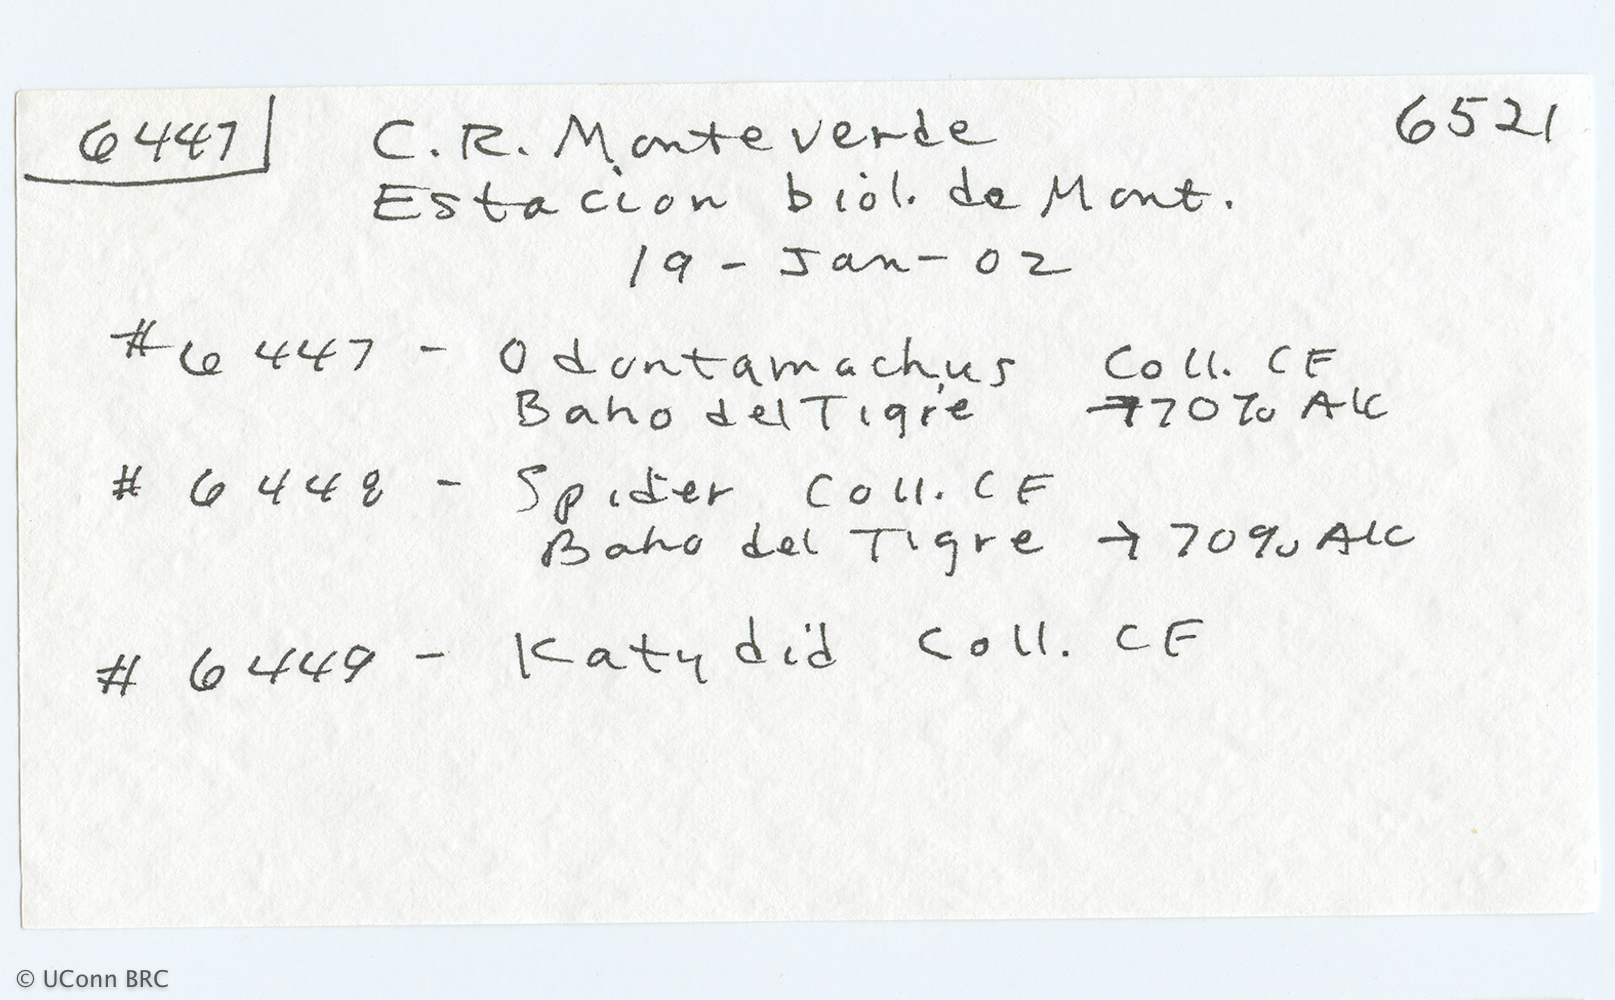 6447 C.R. Monteverde 6521
Estacion biol. de Mont.
19-Jan-02
#6447 - Odontamachus Coll. CF
Baño del Tigre → 70% Alc
# 6448 - Spider Coll. CF
Baño del Tigre → 70% Alc
# 6449 - Katydid Coll. CF
© UConn BRC